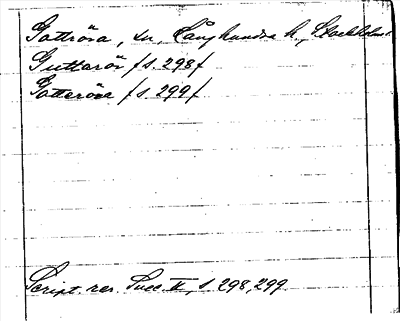 Gottröra, sn, Långhundra h., Stockholms l.
Guttarör /s. 298/
Gotteröra /s. 299/
Script. rer. Suec. II, s. 298, 299